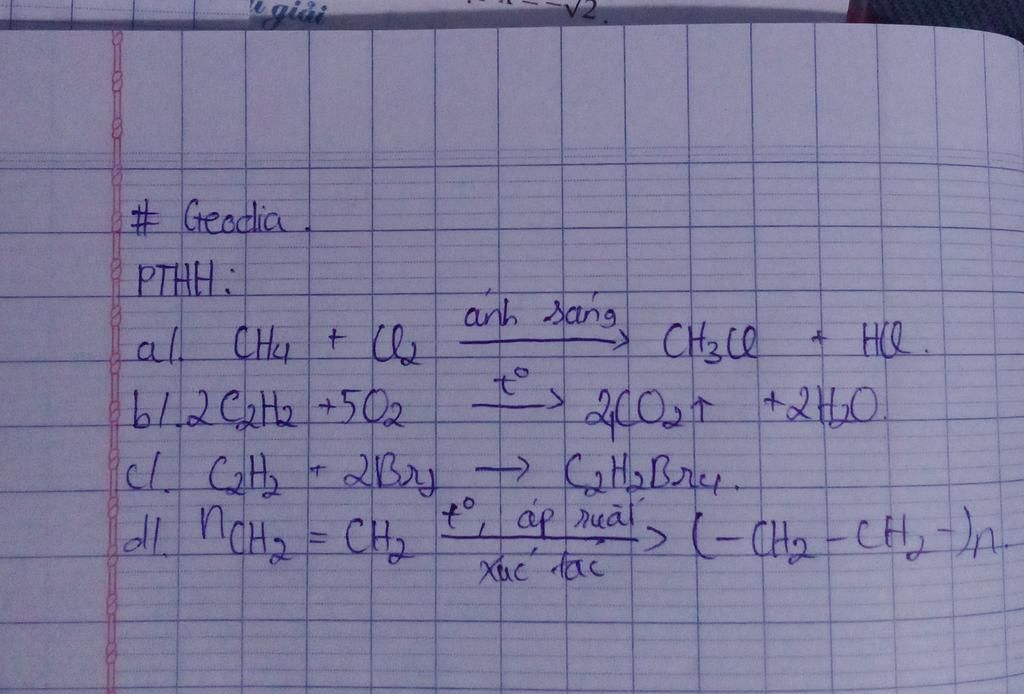 giải
-√2.
# Geodia.
PTHH:
a/. CH4 + Cl2 ánh sáng → CH3Cl + HCl.
b/. 2C2H2 + 5O2 t° → 2CO2↑ + 2H2O.
c/. C2H2 + 2Br2 → C2H2Br4.
d/. nCH2 = CH2 t°, áp suất xúc tác → (-CH2-CH2-)n.